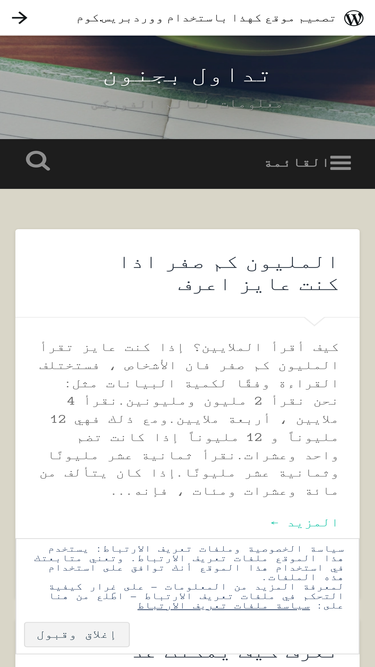 تصميم موقع كهذا باستخدام ووردبريس.كوم
تداول بجنون
معلومات لعالم الفوركس
القائمة
المليون كم صفر اذا
كنت عايز اعرف
كيف أقرأ الملايين؟ إذا كنت عايز تقرأ
المليون كم صفر فان الأشخاص ، فستختلف
القراءة وفقًا لكمية البيانات مثل:
نحن نقرأ 2 مليون ومليونين.نقرأ 4
ملايين ، أربعة ملايين.ومع ذلك فهي 12
مليوناً و 12 مليوناً إذا كانت تضم
واحد وعشرات.نقرأ ثمانية عشر مليونًا
وثمانية عشر مليونًا.إذا كان يتألف من
مائة وعشرات ومئات ، فإنه...
المزيد ←
سياسة الخصوصية وملفات تعريف الارتباط: يستخدم
هذا الموقع ملفات تعريف الارتباط. وتعني متابعتك
في استخدام هذا الموقع أنك توافق على استخدام
هذه الملفات.
لمعرفة المزيد من المعلومات – على غرار كيفية
التحكم في ملفات تعريف الارتباط – اطلع من هنا
على: سياسة ملفات تعريف الارتباط
إغلاق وقبول
تعرف كيف يمكنك عد